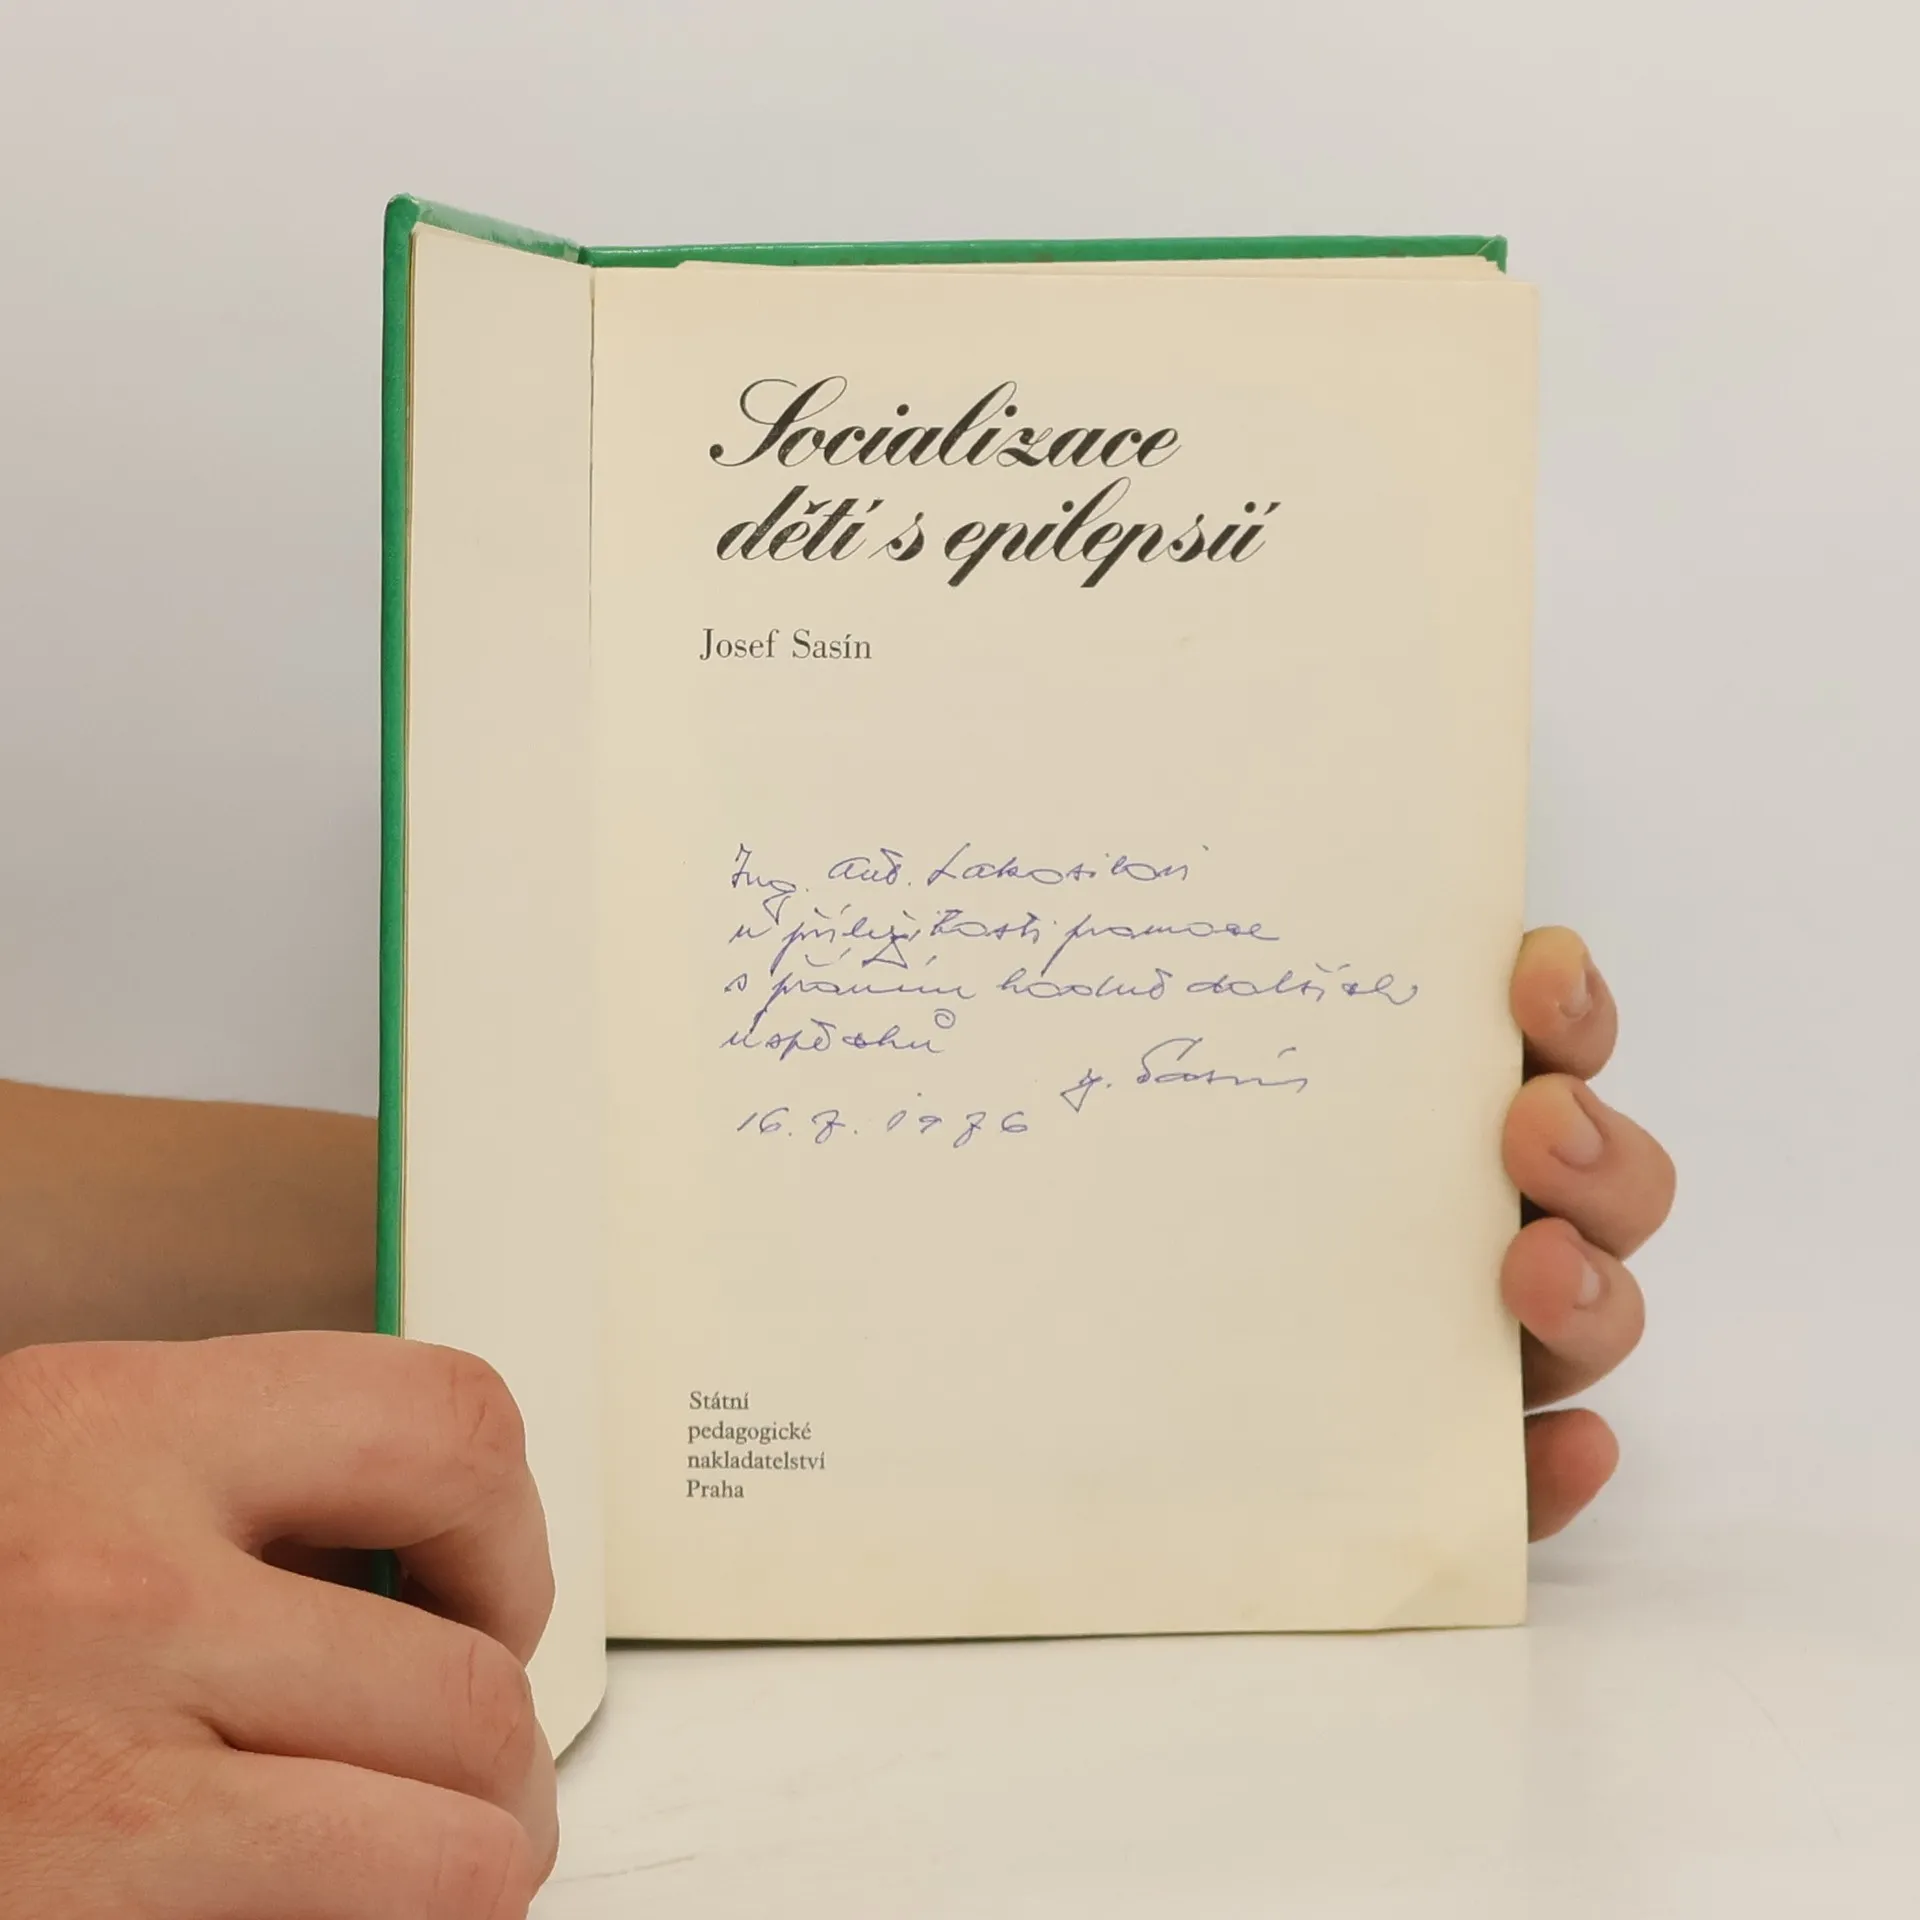 Socializace
dětí s epilepsií
Josef Sasín
Ing. Ant.
u příležitosti promoce
s přáním hodně dalších
úspěchů
J. Sasín
16. 7. 1976
Státní
pedagogické
nakladatelství
Praha